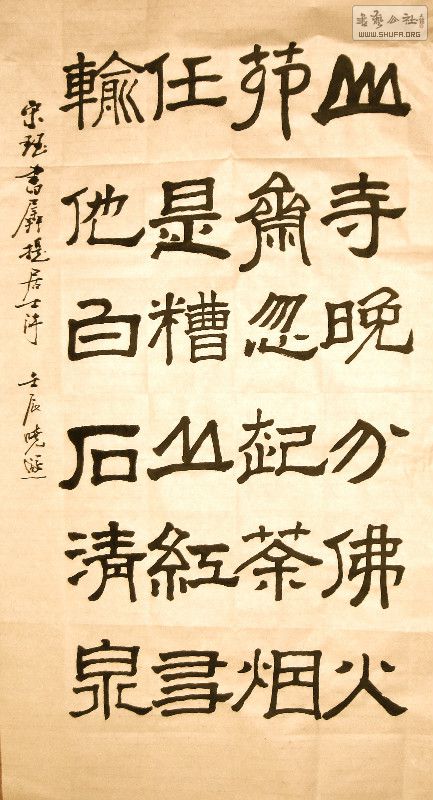 山寺晚分佛火
茆齋忽起茶烟
任是糟丘紅友
輸他白石清泉
宋珏書羼提居士诗 壬辰晓
書藝公社
WWW.SHUFA.ORG